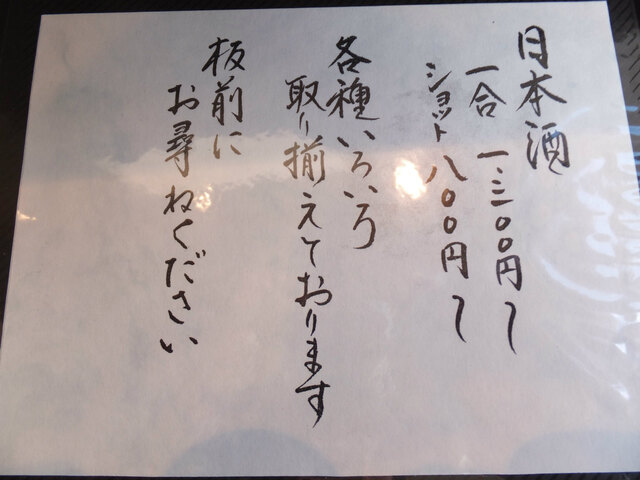 日本酒
一合 一、三〇〇円〜
ショット 八〇〇円〜
各種いろいろ
取り揃えております
板前に
お尋ねください